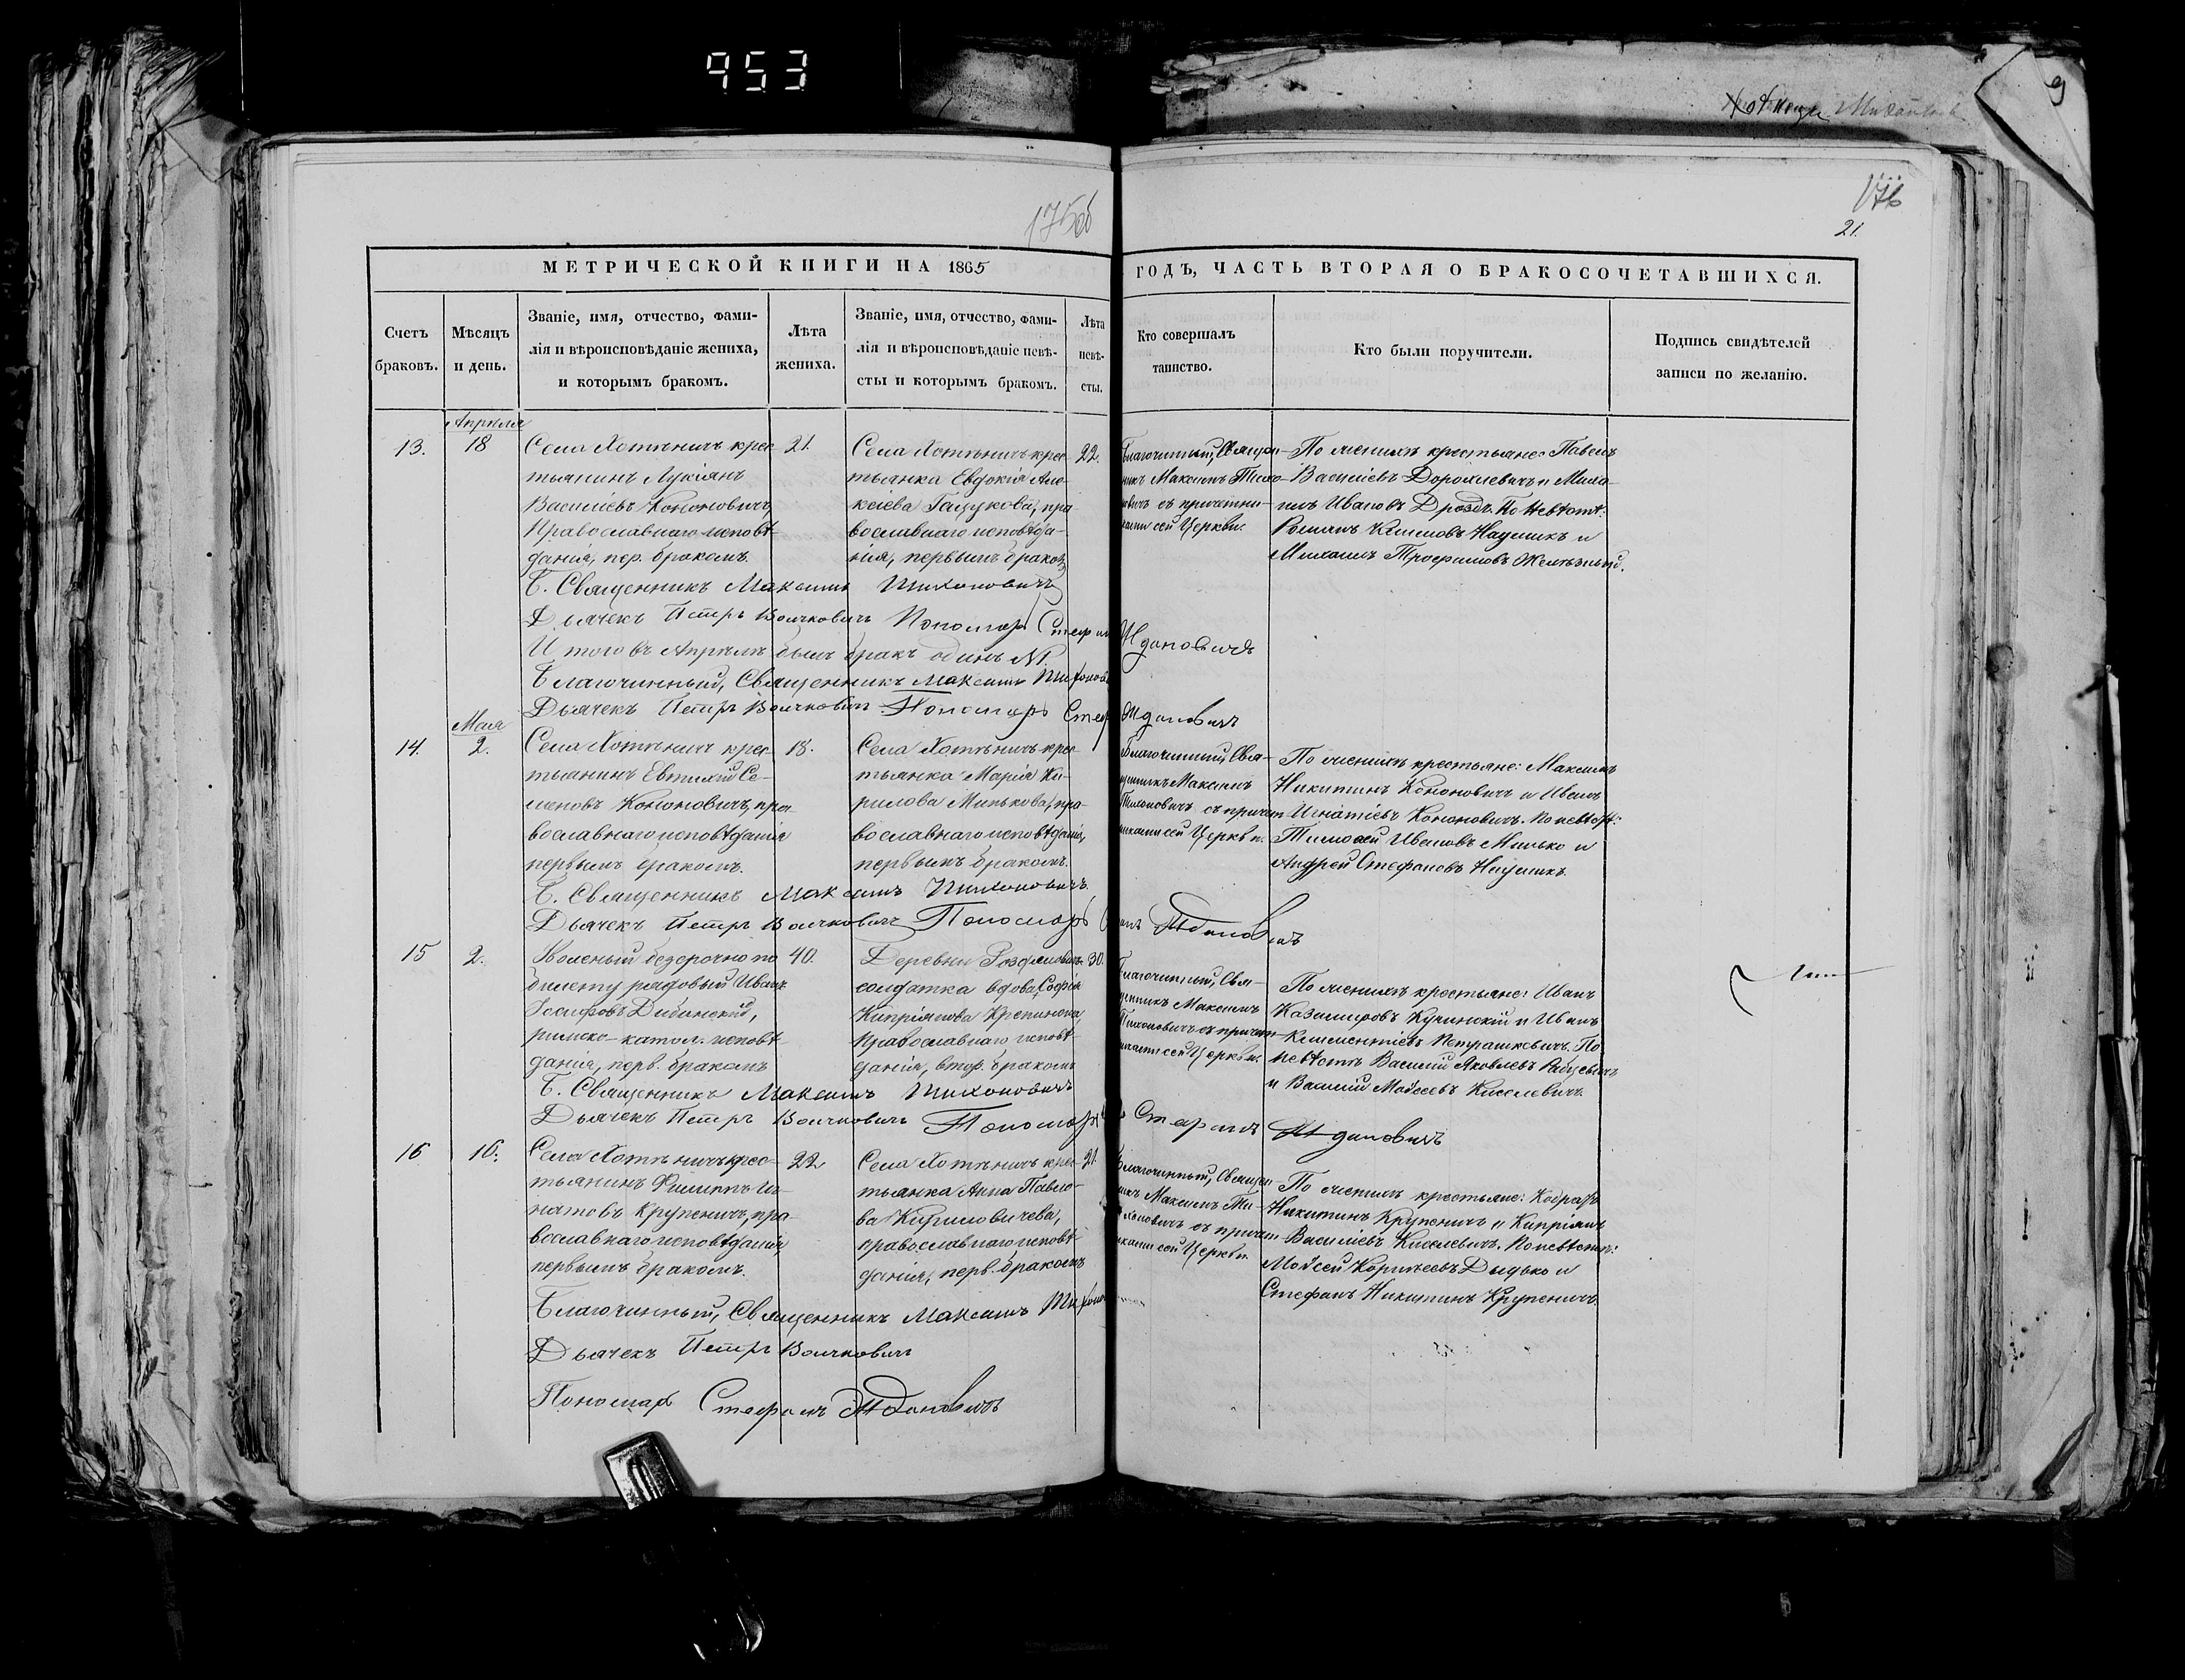 953
175об
176
21.
МЕТРИЧЕСКОЙ КНИГИ НА 1865
ГОДЪ, ЧАСТЬ ВТОРАЯ О БРАКОСОЧЕТАВШИХСЯ.
Счетъ браковъ.
Мѣсяцъ и день.
Званіе, имя, отчество, фами-
лія и вѣроисповѣданіе жениха,
и которымъ бракомъ.
Лѣта жениха.
Званіе, имя, отчество, фами-
лія и вѣроисповѣданіе невѣ-
сты и которымъ бракомъ.
Лѣта невѣ-
сты.
Кто совершалъ
таинство.
Кто были поручители.
Подпись свидѣтелей
записи по желанію.
Апрѣля
13.
18
Села Хотѣничъ крес-
тьянинъ Лукіянъ
Василіевъ Кононовичъ,
Православнаго исповѣ-
данія, пер. бракомъ.
21.
Села Хотѣничъ крес-
тьянка Евдокія Але-
ксіева Гацукова, пра-
вославнаго исповѣда-
нія, первымъ бракомъ
22.
Благочинный, Священ-
никъ Максимъ Тихо-
новичъ съ причетни-
ками сей Церкви.
По женихѣ крестьяне: Павелъ
Василіевъ Дорожевичъ и Миха-
илъ Ивановъ Дроздъ. По невѣстѣ:
Романъ Климовъ Наумикъ и
Михаилъ Трофимовъ Желѣзный.
Б. Священникъ Максимъ Тихоновичъ
Дьячекъ Петръ Волчковичъ Пономарь Стефанъ Ждановичъ
Итого въ Апрѣлѣ былъ бракъ одинъ №1.
Благочинный, Священникъ Максимъ Тихонов
Дьячекъ Петръ Волчковичъ Пономарь Стеф Ждановичъ
Мая
14.
2.
Села Хотѣничъ крес-
тьянинъ Евтихій Се-
меновъ Кононовичъ, пра-
вославнаго исповѣданія
первымъ бракомъ.
18.
Села Хотѣничъ крес-
тьянка Марія Ки-
рилова Минькова, пра-
вославнаго исповѣданія,
первымъ бракомъ.
Благочинный, Свя-
щенникъ Максимъ
Тихоновичъ съ причет-
никами сей Церкви.
По женихѣ крестьяне: Максимъ
Никитинъ Кононовичъ и Иванъ
Игнатіевъ Кононовичъ. По невѣстѣ:
Тимофей Ивановъ Минько и
Андрей Стефановъ Наумикъ.
Б. Священникъ Максимъ Тихоновичъ.
Дьячекъ Петръ Волчковичъ Пономарь анъ Ждановичъ
15
2.
Уволеный безсрочно по
билету рядовый Иванъ
Іосифовъ Дибинскій,
римско-катол. исповѣ-
данія, перв. бракомъ
40.
Деревни
солдатка вдова, Софія
Кипріянова
Православнаго исповѣ-
данія, втор. бракомъ
30.
Благочинный, Свя-
щенникъ Максимъ
Тихоновичъ съ причет-
никами сей Церкви.
По женихѣ крестьяне: Иванъ
Казимировъ Кучинскій и Иванъ
Климентіевъ Петрашкевичъ. По
невѣстѣ Василій Яковлевъ
и Василій Мойсеевъ Киселевичъ.
Б. Священникъ Максимъ Тихоновичъ
Дьячекъ Петръ Волчковичъ Пономарь Стефанъ Ждановичъ
16
16.
Села Хотѣничъ крес-
тьянинъ Филиппъ Иг-
натовъ Крупеничъ, пра-
вославнаго исповѣданія,
первымъ бракомъ.
22
Села Хотѣничъ крес-
тьянка Анна Павло-
ва Кириловичева,
православнаго исповѣ-
данія, перв. бракомъ
21.
Благочинный, Священ-
никъ Максимъ Ти-
хоновичъ съ причет-
никами сей Церкви.
По женихѣ крестьяне: Кодратъ
Никитинъ Крупеничъ и Кипріянъ
Василіевъ Киселевичъ. По невѣстѣ:
Мойсей Корнѣевъ Дыдько и
Стефанъ Никитинъ Крупеничъ.
Благочинный, Священникъ Максимъ Тихонов
Дьячекъ Петръ Волчковичъ
Пономарь Стефанъ Ждановичъ